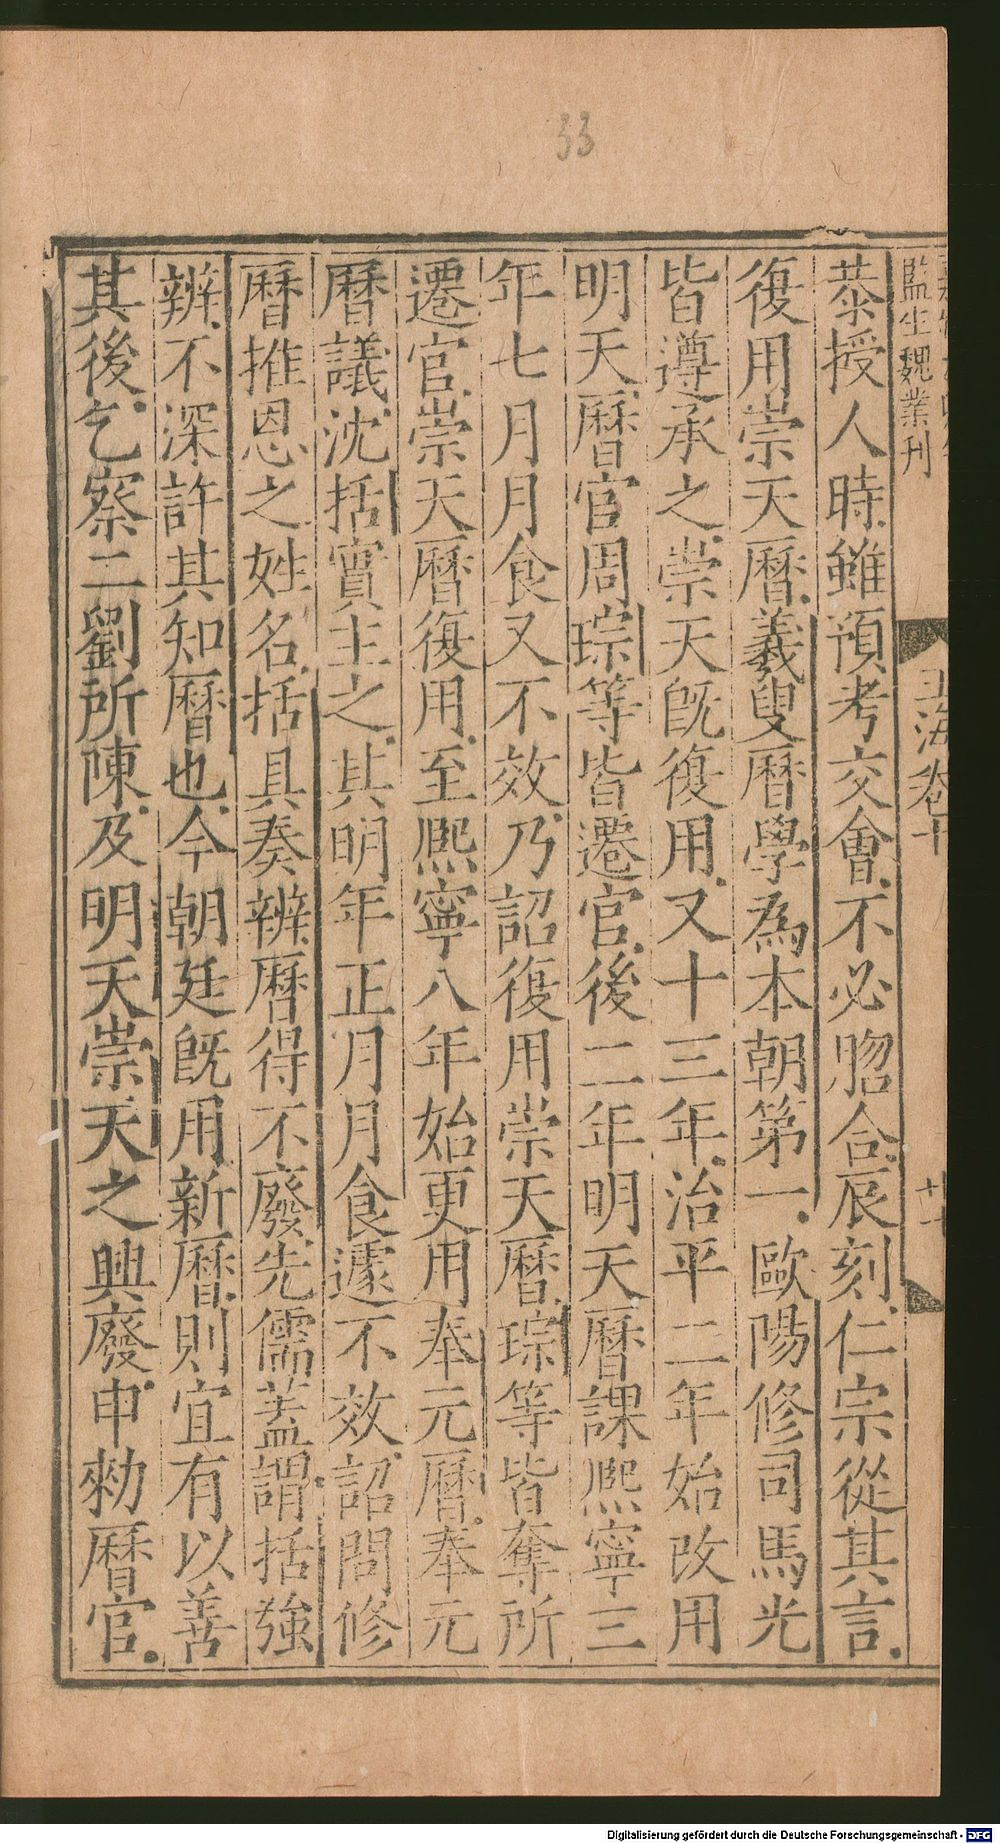 33
監生魏業刊
玉海卷十
恭授人時雖預考交會不必脗合辰刻仁宗從其言
復用崇天曆羲叟曆學為本朝第一歐陽修司馬光
皆遵承之崇天既復用又十三年治平二年始改用
明天曆官周琮等皆遷官後二年明天曆課熙寧三
年七月月食又不效乃詔復用崇天曆琮等皆奪所
遷官崇天曆復用至熙寧八年始更用奉元曆奉元
曆議沈括實主之其明年正月月食遽不效詔問修
曆推恩之姓名括具奏辨曆得不廢先儒蓋謂括強
辨不深許其知曆也今朝廷既用新曆則宜有以善
其後乞察二劉所陳及明天崇天之興廢申勑曆官
Digitalisierung gefördert durch die Deutsche Forschungsgemeinschaft - DFG